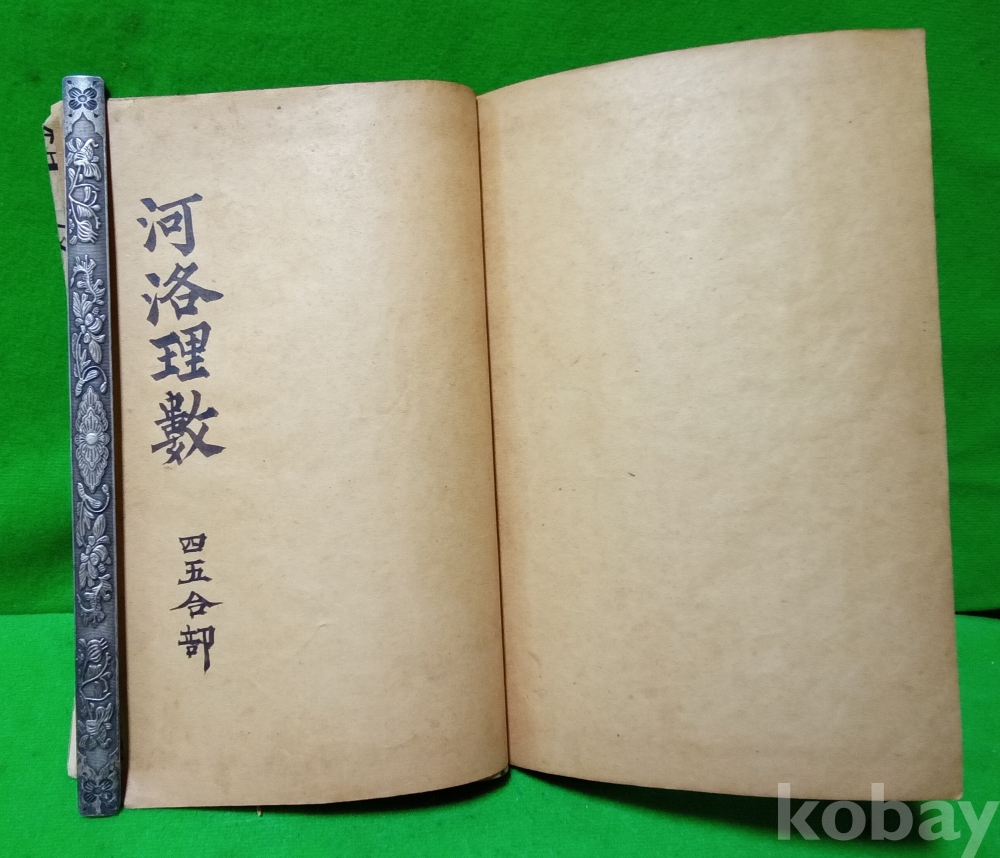 河洛理數
四五合部
kobay